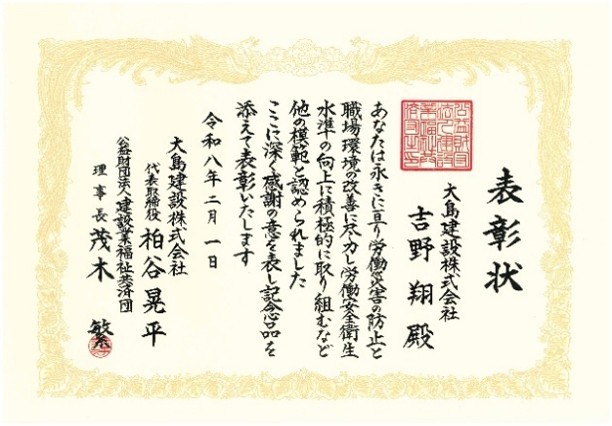 表彰状
大島建設株式会社
吉野 翔 殿
あなたは永きに亘り労働災害の防止と
職場環境の改善に尽力し労働安全衛生
水準の向上に積極的に取り組むなど
他の模範と認められました
ここに深く感謝の意を表し記念品を
添えて表彰いたします
令和八年二月一日
大島建設株式会社
代表取締役 柏谷晃平
公益財団法人建設業福祉共済団
理事長 茂木 繁